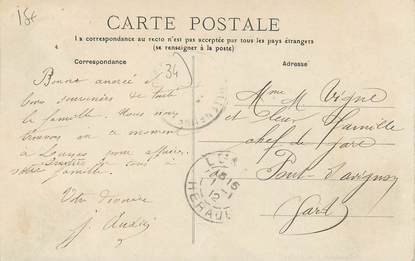 15€
CARTE POSTALE
La correspondance au recto n'est pas acceptée par tous les pays étrangers
(se renseigner à la poste)
Correspondance
Adresse
34
Bonne année et
bons souvenirs de toute
la famille. Nous nous
trouvons en ce moment
à pour affaire.
à tous
famille
Votre
J.
Mme M Vigne
et leur famille
chef de gare
Pont d'avignon
Gard
HERAULT